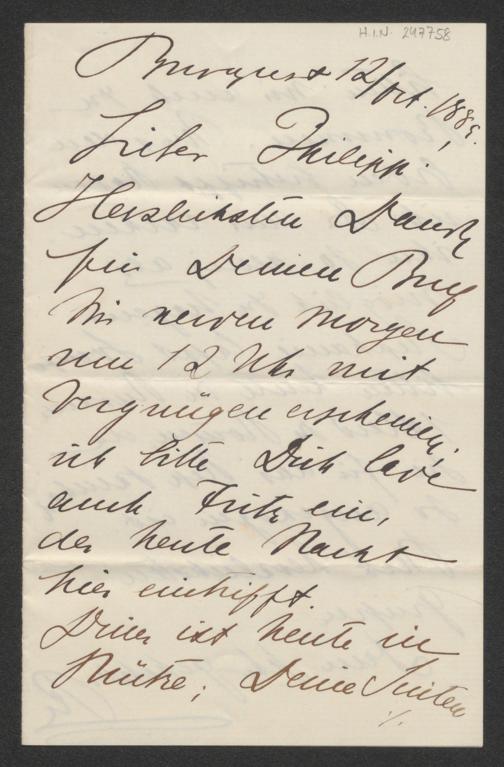 H.I.N. 247758
Budapest 12/Oct. 1889.
Lieber Philipp!
Herzlichsten Dank
für Deinen Brief
Wir werden morgen
um 12 Uhr mit
Vergnügen erscheinen,
ich bitte Dich lade
auch Fritz ein,
der heute Nacht
hier eintrifft.
Diner ist heute in
Mütze; Deine
./.